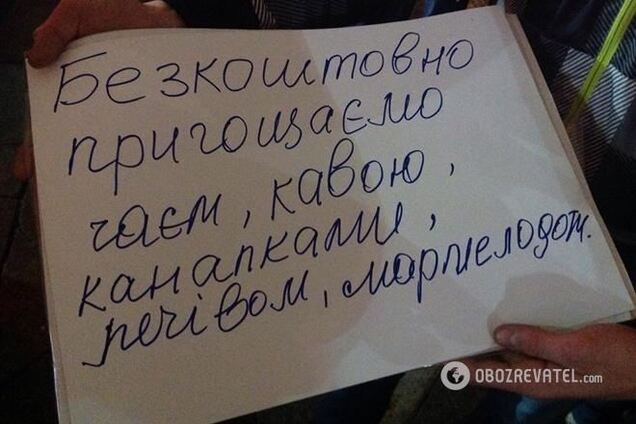 Безкоштовно
пригощаємо
чаєм, кавою,
канапками,
печівом, мармелодом.
OBOZREVATEL.com